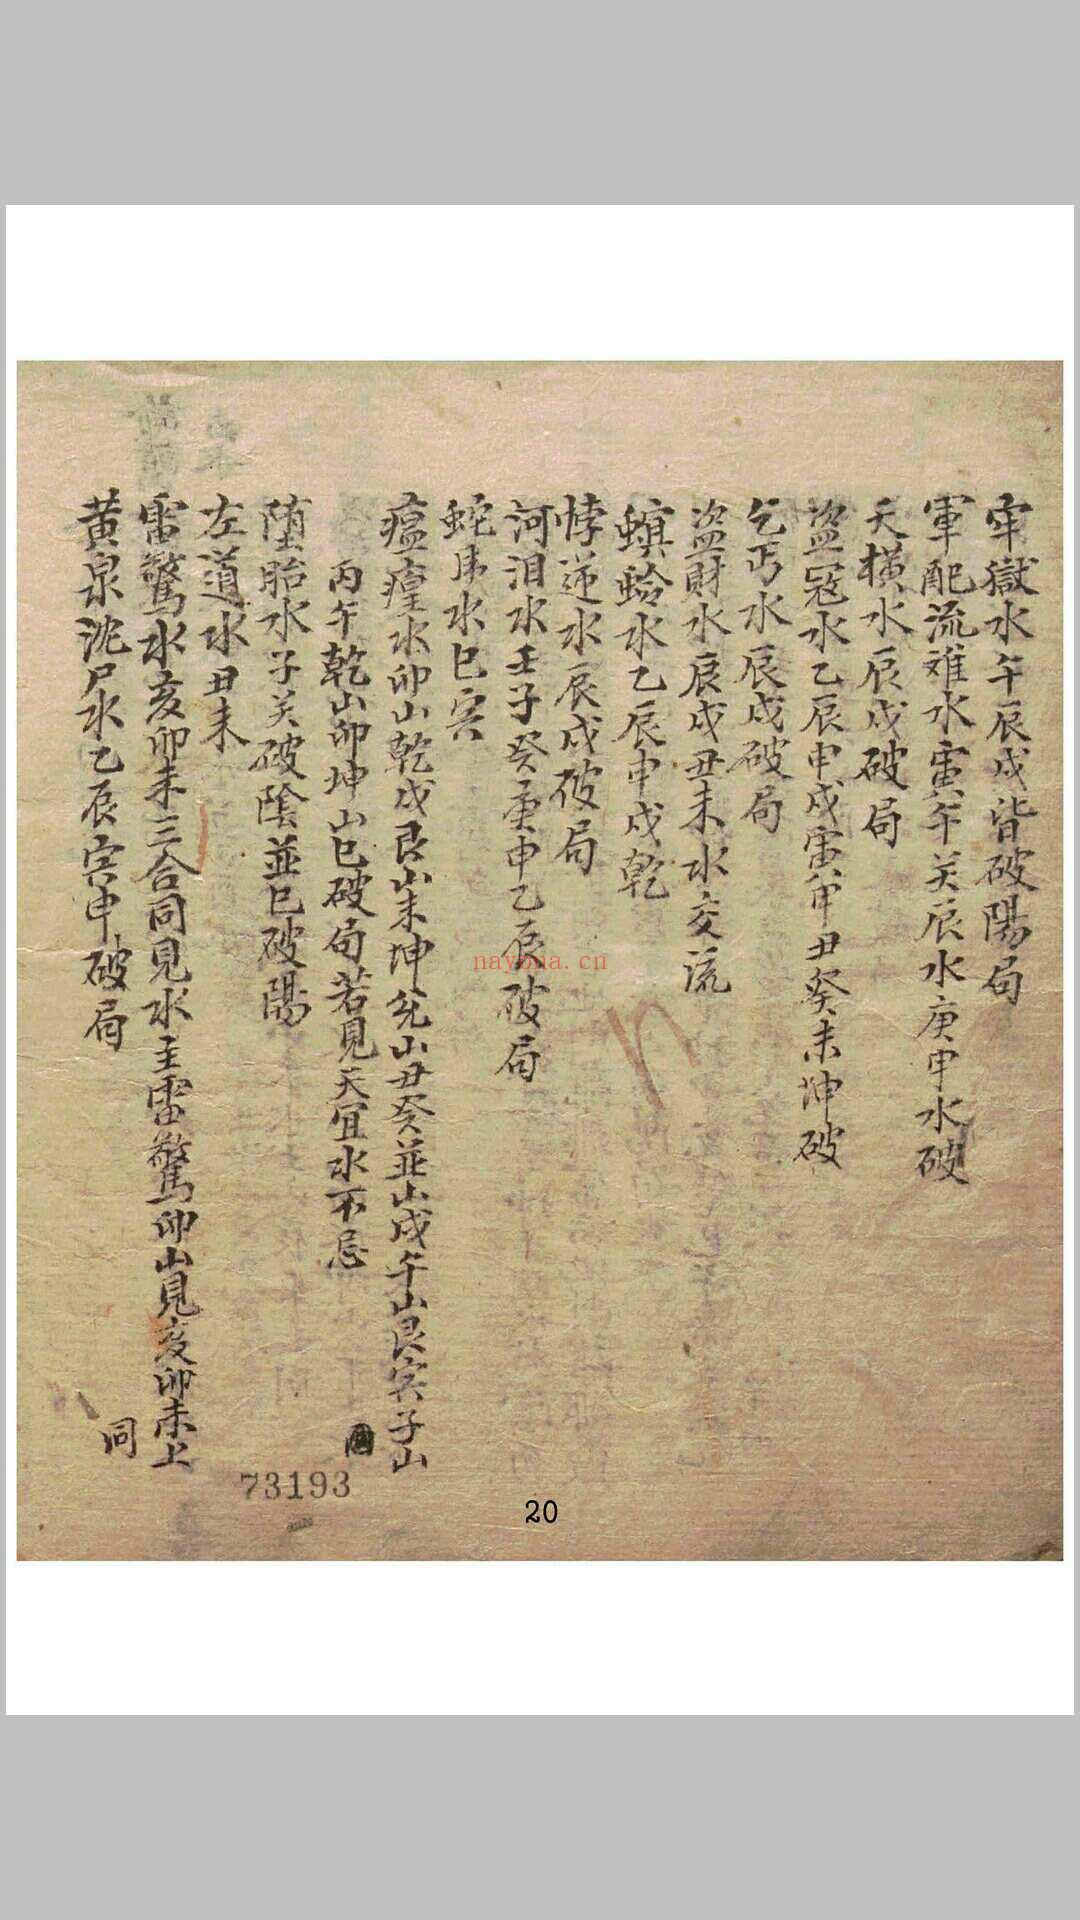 牢獄水午辰戌皆破陽局
軍配流难水寅午关辰水庚申水破
天横水辰戌破局
盗寇水乙辰申戌寅甲丑癸未坤破
乞丐水辰戌破局
盗財水辰戌丑未水交流
螟蛉水乙辰申戌乾
悖逆水辰戌破局
河泪水壬子癸庚申乙辰破局
蛇水巳寅
瘟㾮水卯山乾戌艮山未坤兑山丑癸並山戌午山艮寅子山
丙午乾山卯坤山巳破局若見天宜水不忌
堕胎水子关破陰並巳破陽
左道水丑未
雷驚水亥卯未三合同見水主雷驚卯山見亥卯未上
同
黄泉沈尸水乙辰寅申破局
nayona.cn
73193
20